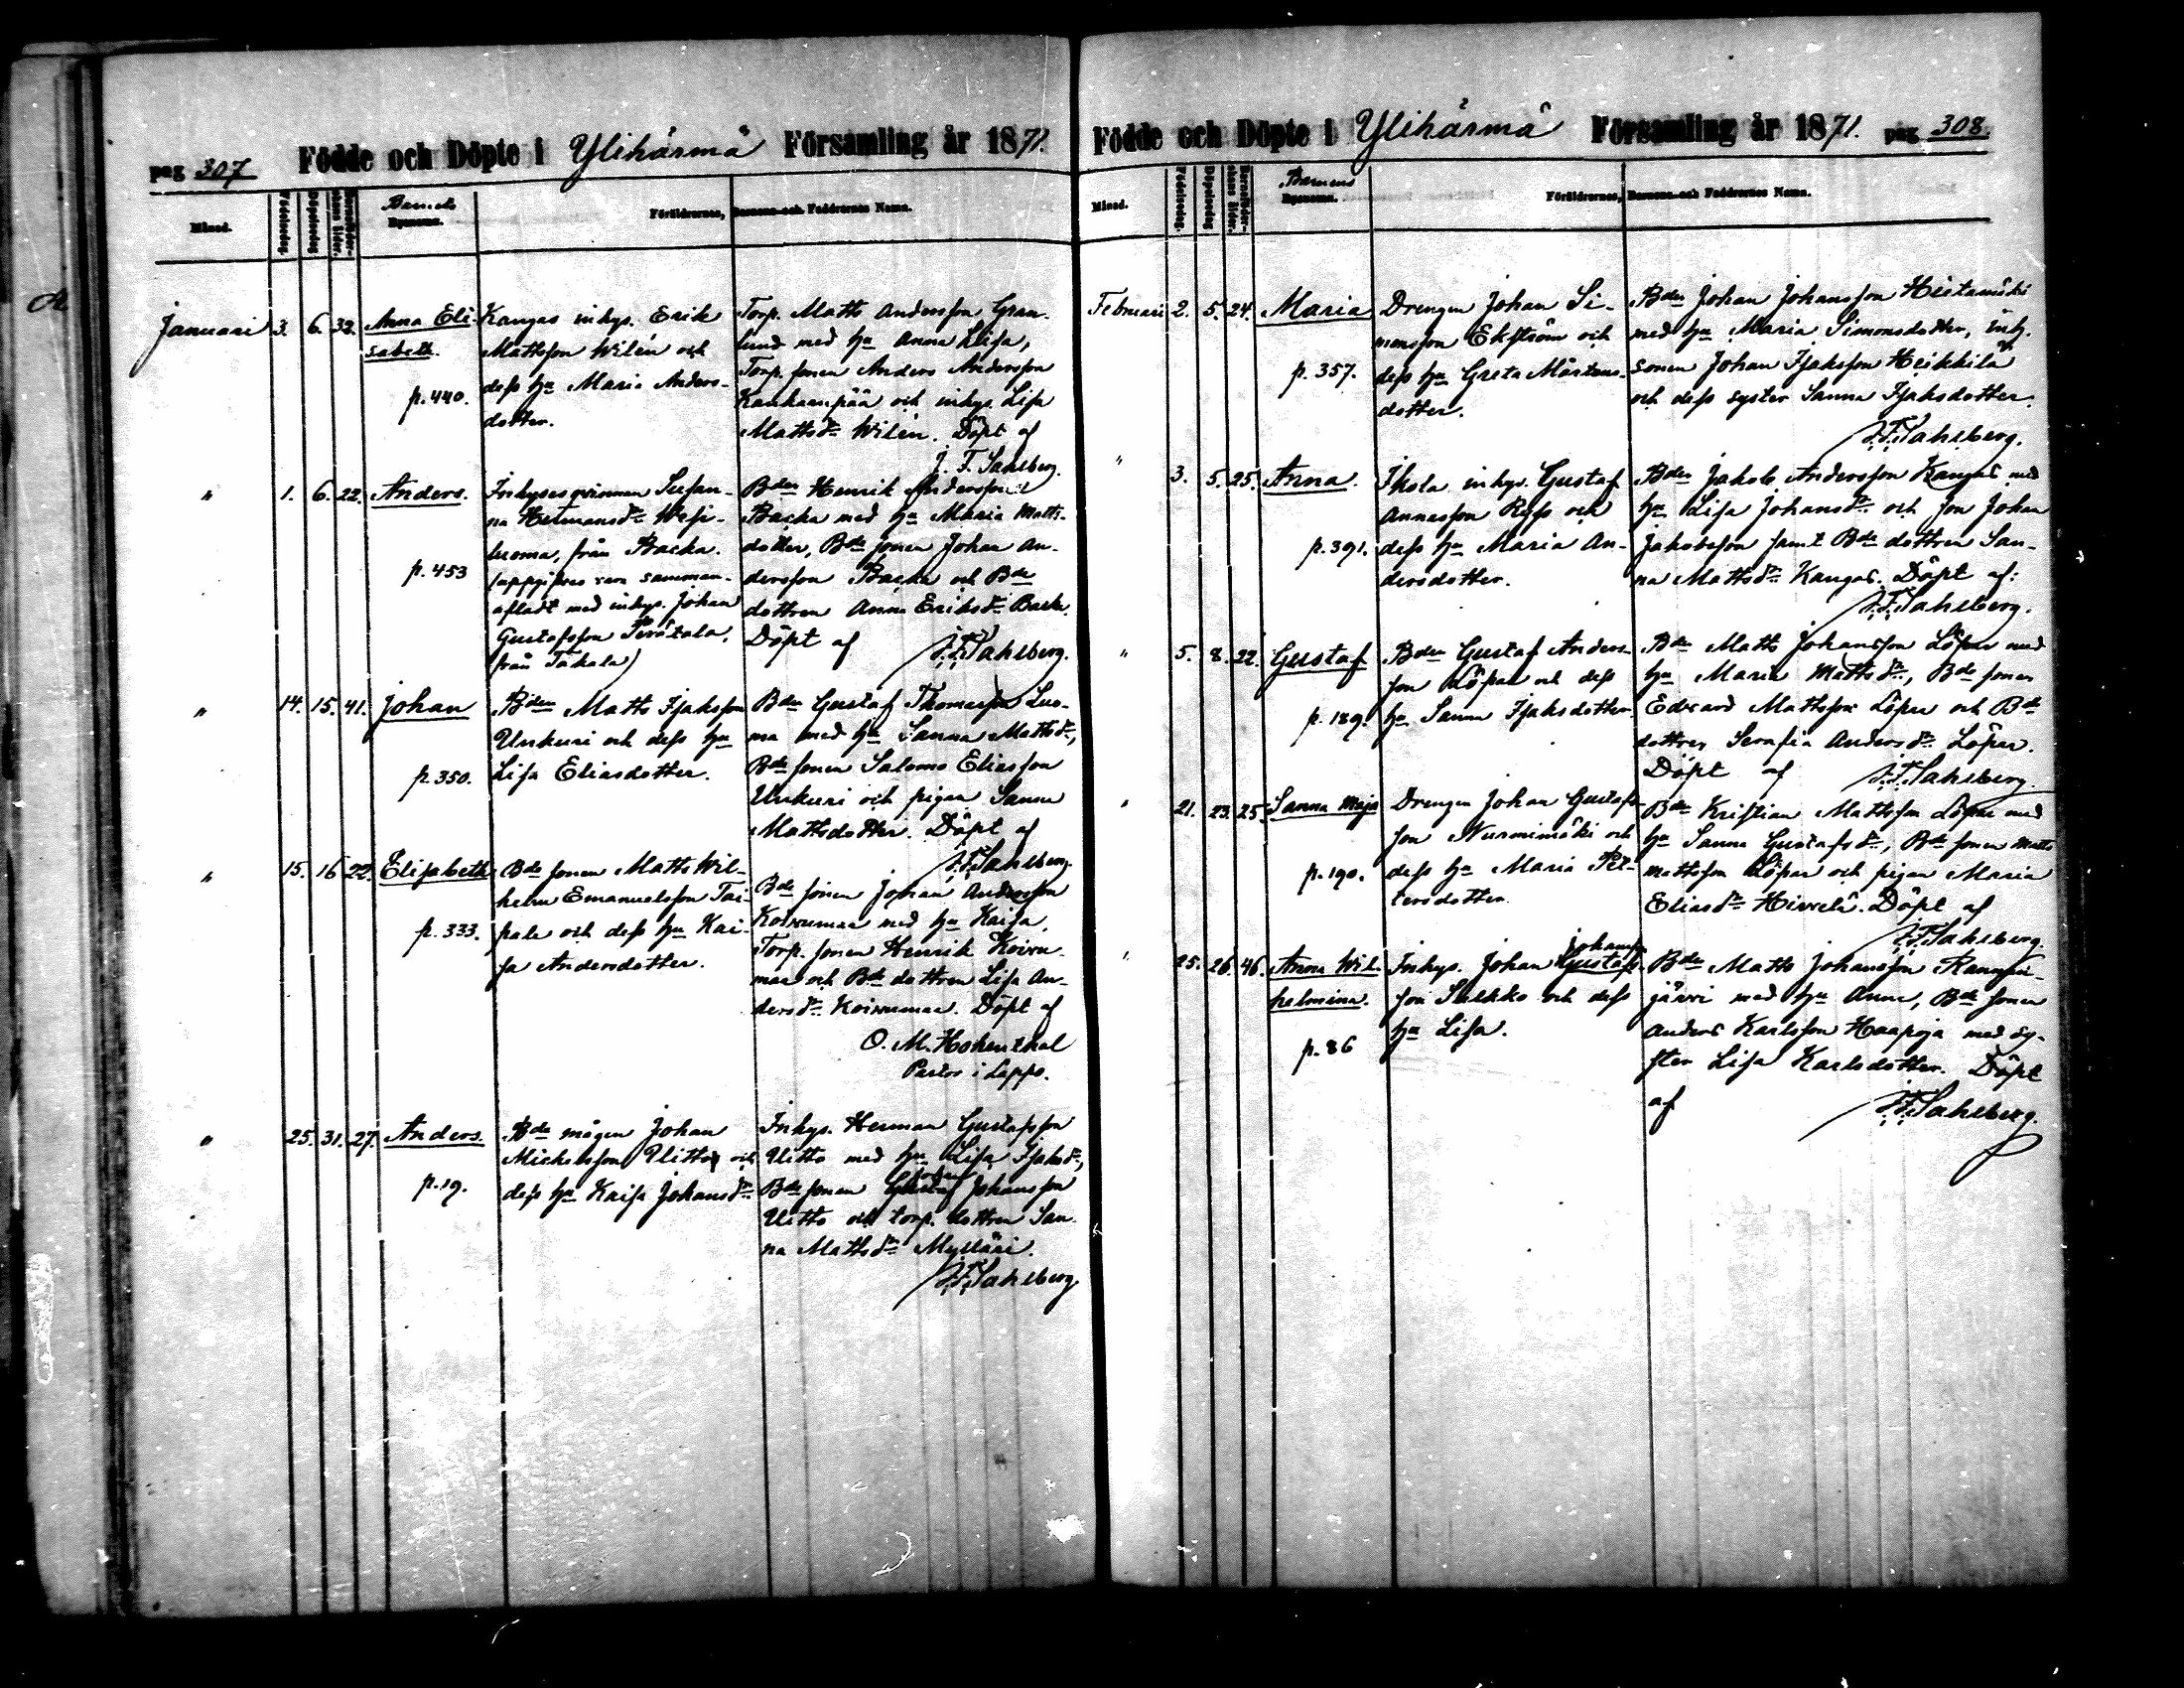 pag 307 Födde och Döpte i Ylihärmä Församling år 1871.
Månad. Födelsedag. Döpelsedag Barnaföder-skans ålder. Barnets Byenamn. Föräldrarnes, Barnens och Faddrarnes Namn.
Januari 3. 6. 32. Anna Eli-
sabeth.
p. 440.
Kangas inhys. Erik
Mattsson Wilén och
dess hu Maria Anders-
dotter.
Torp. Matts Andersson Gran-
lund med hu Anna Lisa,
Torp. sonen Anders Andersson
Kankanpää och inhys. Lisa
Mattsdr Wilén. Döpt af
J. F. Sahlberg.
" 1. 6. 22. Anders.
p. 453
Inhysesqvinnan Susan-
na Hermansdr Wesi-
luoma, från Backa.
(uppgifves vara samman-
afladt med inhys. Johan
Gustafsson Perätala,
från Takala)
Bden Henrik Andersson
Backa med hu Maria Matts-
dotter, Bde sonen Johan An-
dersson Backa och Bde
dottren Anna Eriksdr Backa.
Döpt af J. F. Sahlberg.
" 14. 15. 41. Johan
p. 350.
Bden Matts Isaksson
Unkuri och dess hu
Lisa Eliasdotter.
Bde Gustaf Thomasson Luo-
ma med hu Sanna Mattsdr,
Bde sonen Salomo Eliasson
Unkuri och pigan Sanna
Mattsdotter. Döpt af
J. F. Sahlberg.
" 15. 16 22. Elisabeth
p. 333.
Bde sonen Matts Wil-
helm Emanuelsson Tai-
pale och dess hu Kai-
sa Andersdotter.
Bde sonen Johan Andersson
Koivumaa med hu Kaisa,
Torp. sonen Henrik Koivu-
maa och Bde dottren Lisa An-
dersdr Koivumaa. Döpt af
O. M. Hohenthal
Pastor i Lappo.
" 25. 31. 27. Anders.
p. 19.
Bde mågen Johan
Michelsson Uitto och
dess hu Kaisa Johansdr
Inhys. Herman Gustafsson
Uitto med hu Lisa Isaksdr,
Bde sonen Johan Johansson
Uitto och torp. dottren San-
na Mattsdr Mylläri.
J. F. Sahlberg
Födde och Döpte i Ylihärmä Församling år 1871. pag 308.
Månad. Födelsedag. Döpelsedag Barnaföder-skans ålder. Barnens Byenamn. Föräldrarnes, Barnens och Faddrarnes Namn.
Februari 2. 5. 24. Maria
p. 357.
Drengen Johan Si-
monsson Ekström och
dess hu Greta Mårtens-
dotter.
Bden Johan Johansson Hietamäki
med hu Maria Simonsdotter, inh.
sonen Johan Isaksson Heikkilä
och dess syster Sanna Isaksdotter.
J. F. Sahlberg.
" 3. 5. 25. Anna.
p. 391.
Ikola inhys. Gustaf
Annasson Ryss och
dess hu Maria An-
dersdotter.
Bden Jakob Andersson Kangas med
hu Lisa Johansdr och son Johan
Jakobsson samt Bde dottren San-
na Mattsdr Kangas. Döpt af:
J. F. Sahlberg.
" 5. 8. 22. Gustaf
p. 189.
Bden Gustaf Anders-
son Löpar och dess
hu Sanna Isaksdotter.
Bde Matts Johansson Löpar med
hu Maria Mattsdr, Bde sonen
Edvard Mattsson Löpar och Bde
dottren Serafia Andersdr Löpar.
Döpt af J. F. Sahlberg.
" 21. 23. 25. Sanna Maja
p. 190.
Drengen Johan Gustafs-
son Nurmimäki och
dess hu Maria Pet-
tersdotter.
Bde Kristian Mattsson Löpar med
hu Sanna Gustafsdr, Bde sonen Matts
Mattsson Löpar och pigan Maria
Eliasdr Hirvelä. Döpt af
J. F. Sahlberg.
" 25. 26. 46. Anna Wil-
helmina.
p. 86
Inhys. Johan Gustafs-
son Sulkko och dess
hu Lisa.
Bde Matts Johansson
järvi med hu Anna, Bde sonen
Anders Karlsson Haapoja med sy-
ster Lisa Karlsdotter. Döpt
af J. F. Sahlberg.